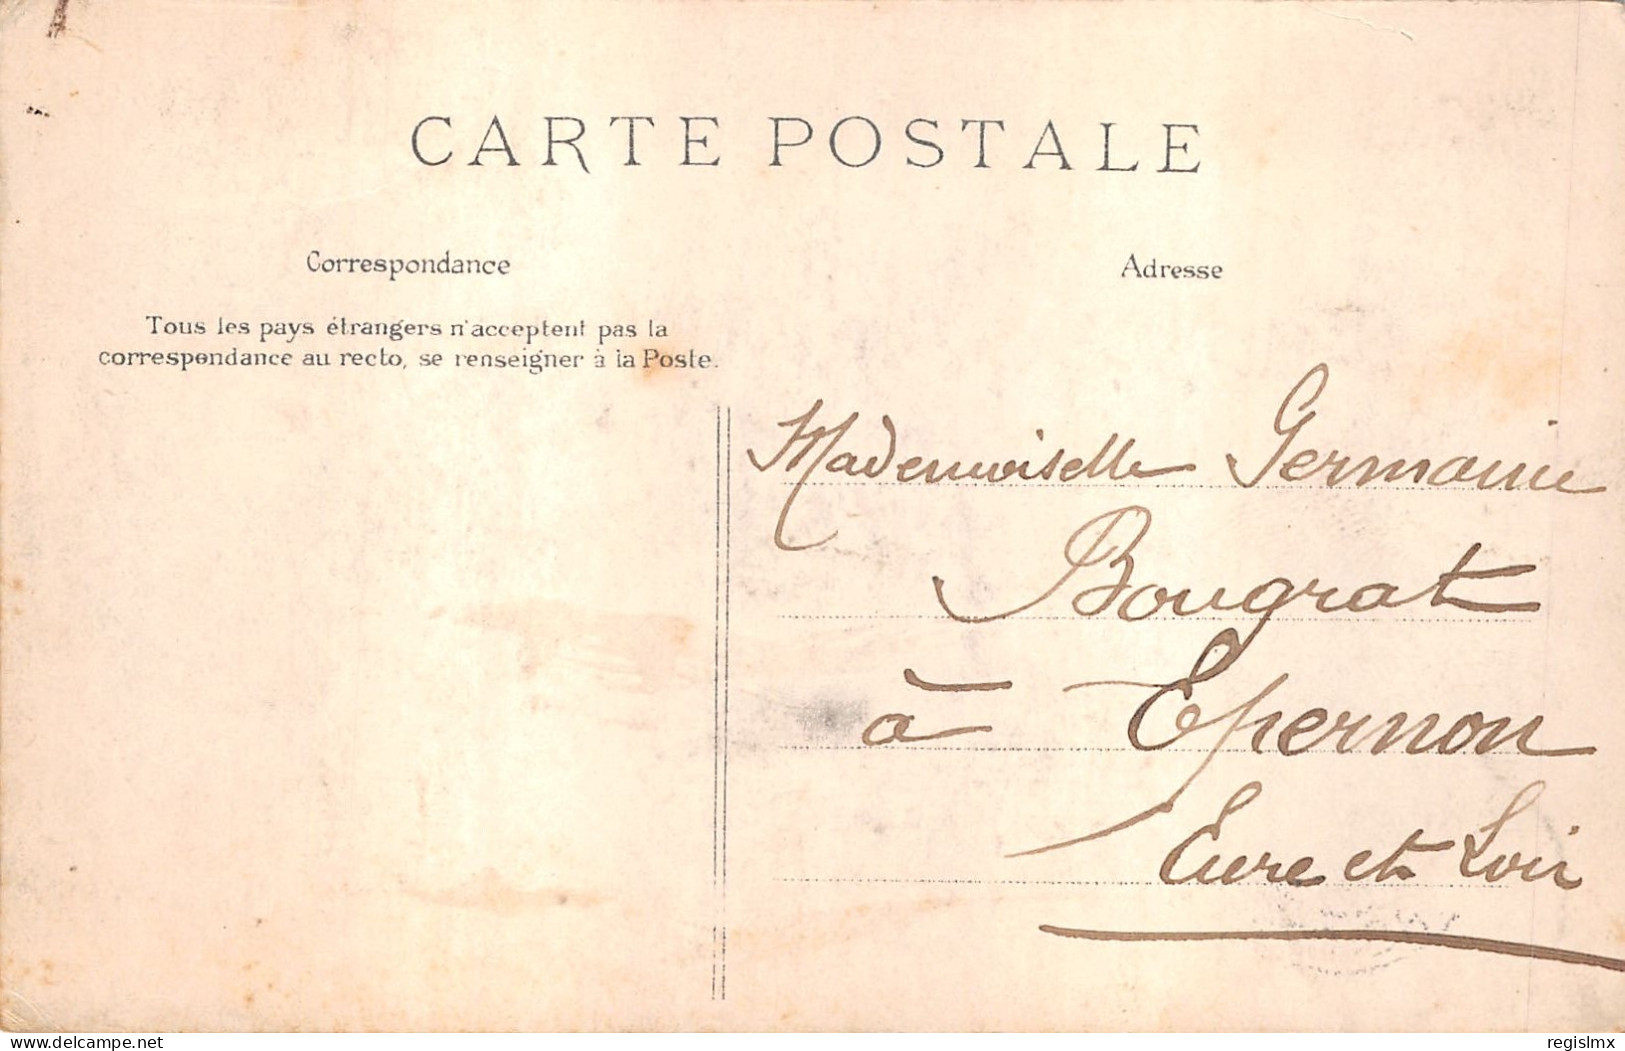 CARTE POSTALE
Correspondance
Tous les pays étrangers n'acceptent pas la
correspondance au recto, se renseigner à la Poste.
Adresse
Mademoiselle Germaine
Bougrat
à Epernon
Eure et Loir
delcampe.net
regislmx